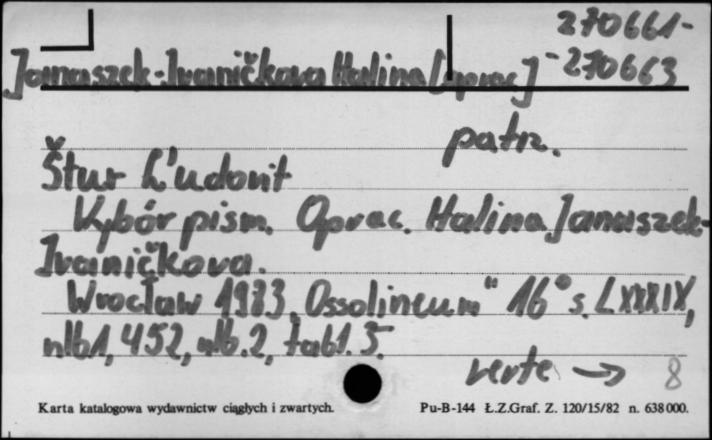 270661-
Janaszek-Ivaničkova Halina [oprac] -270663
patrz.
Štur Ľudovit
Wybór pism. Oprac. Halina Janaszek-
Ivaničkova.
Wrocław 1983 „Ossolineum" 16° s. LXXXIX,
nlb1, 452, nlb.2, tabl. 5.
verte → 8
Karta katalogowa wydawnictw ciągłych i zwartych. Pu-B-144 Ł.Z.Graf. Z. 120/15/82 n. 638 000.